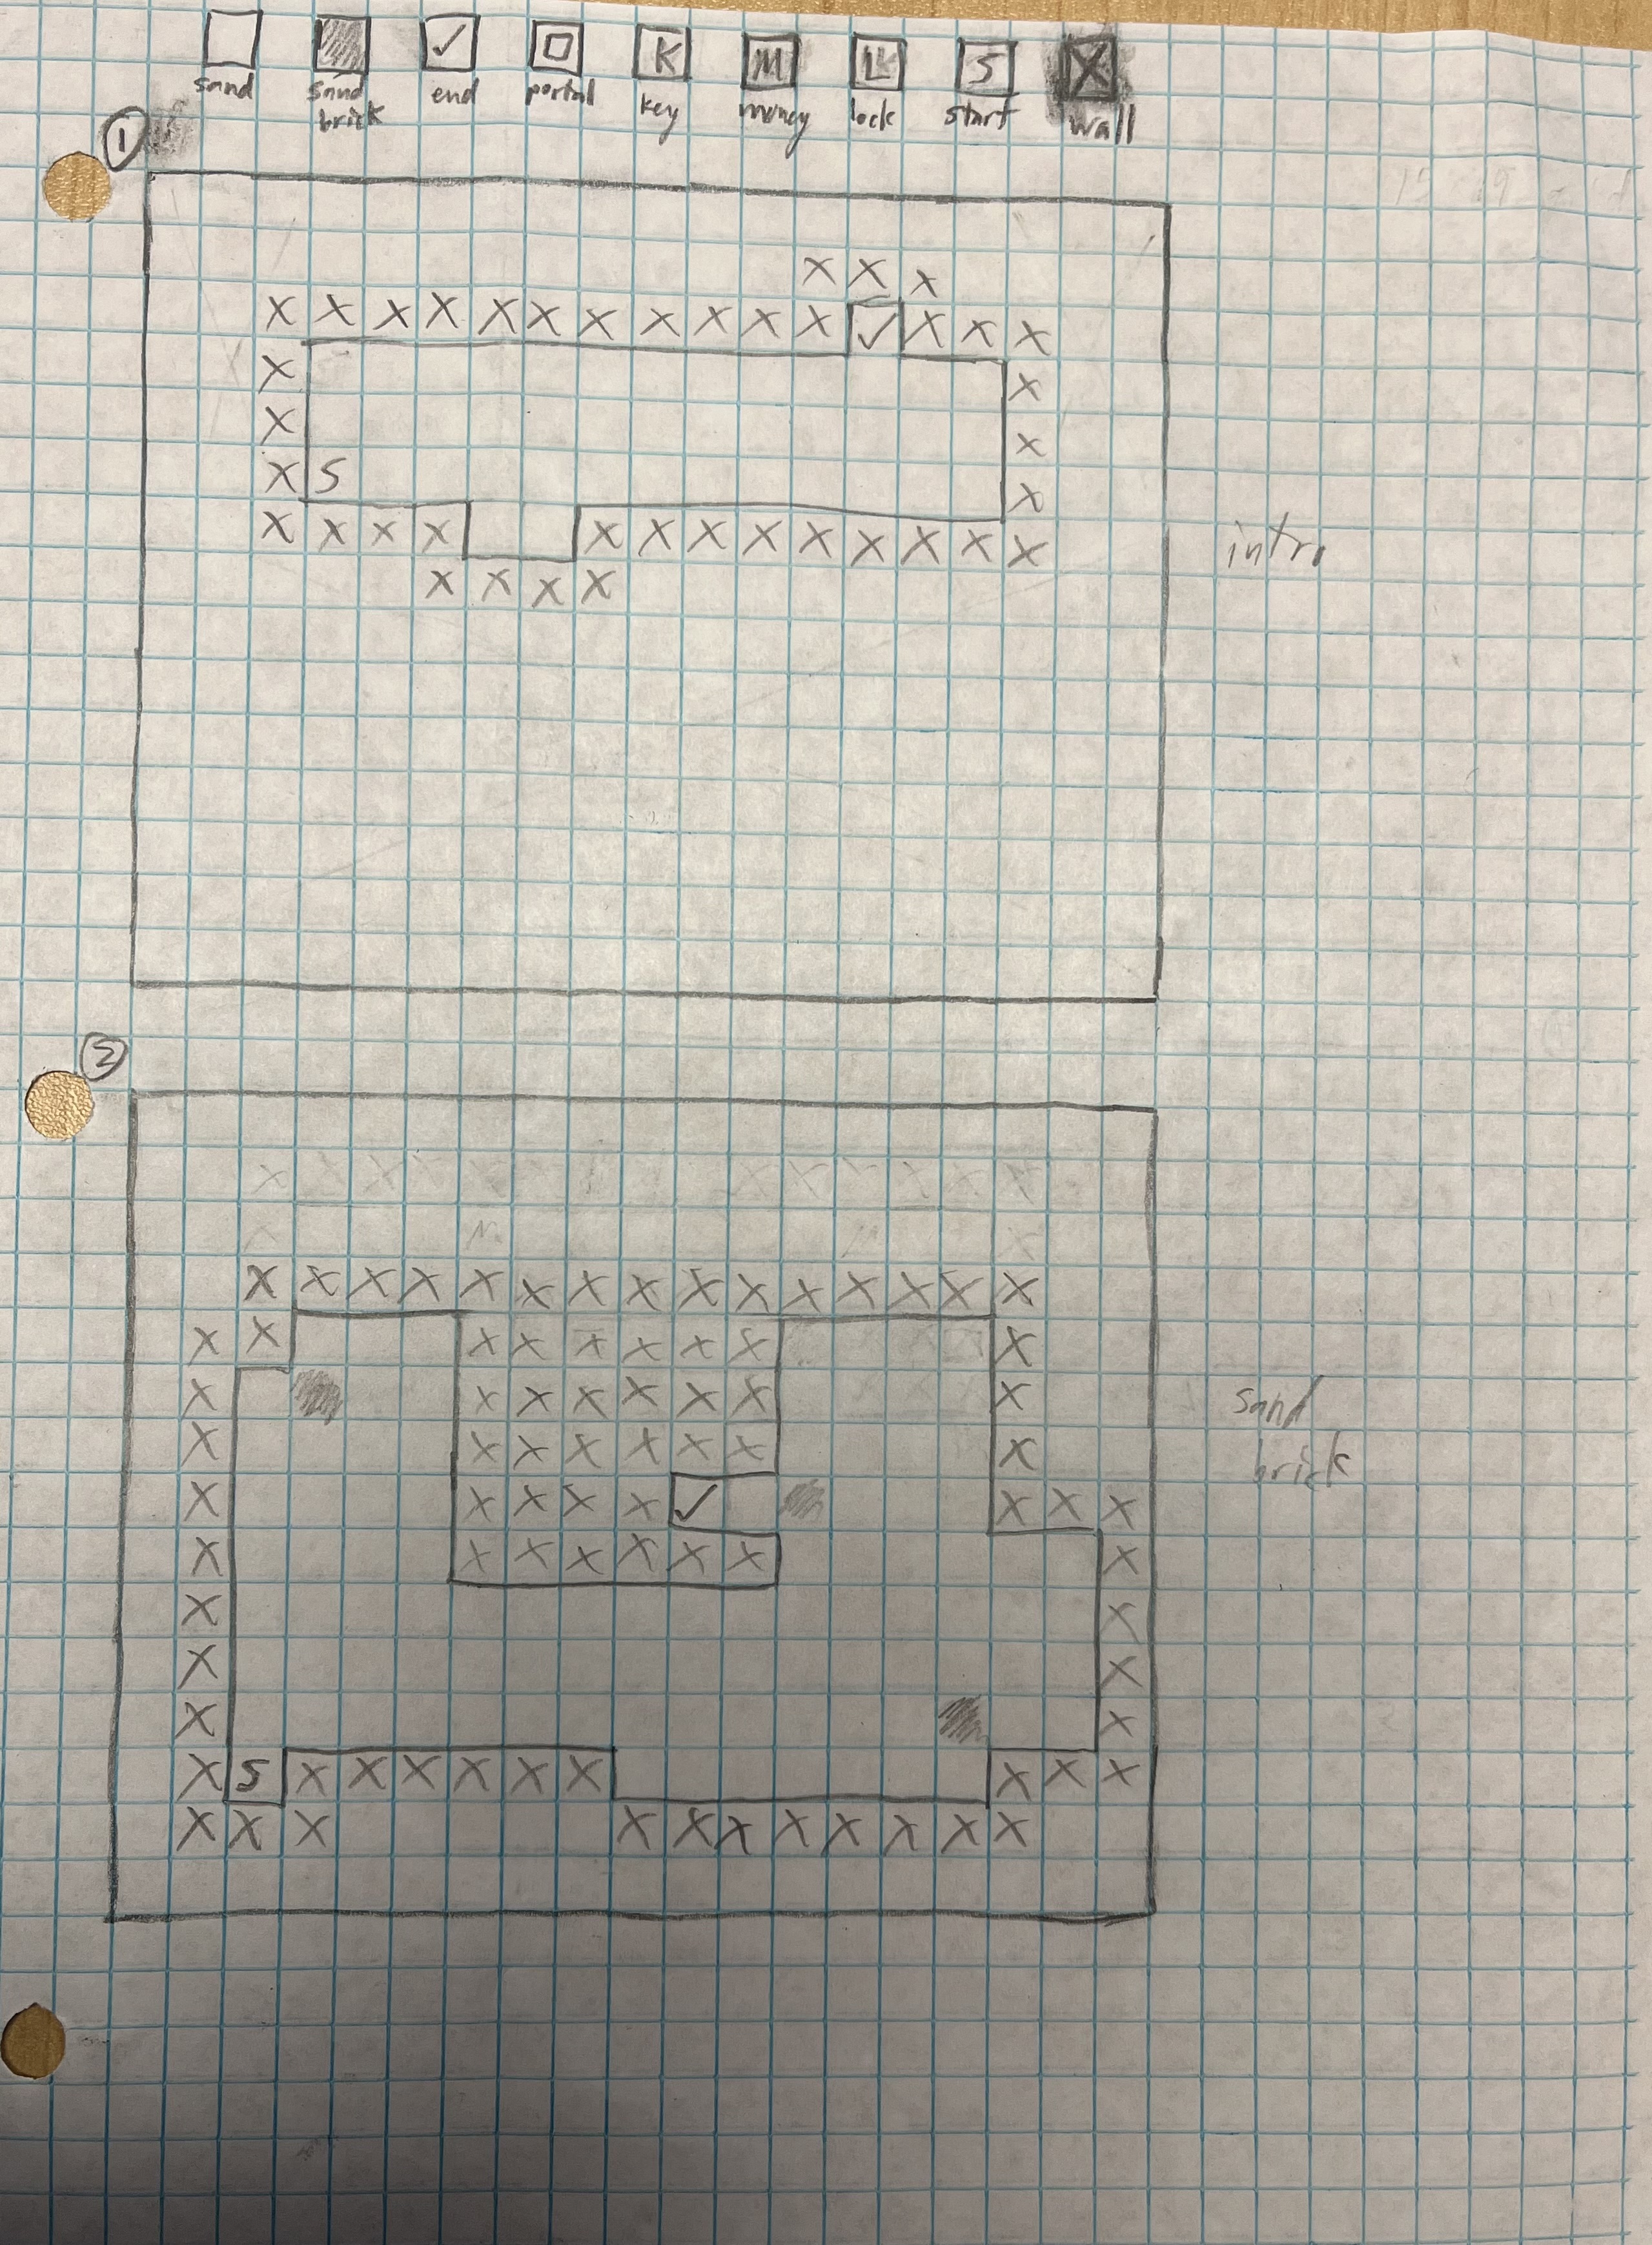 K M L S X
sand sand brick end portal key money lock start wall
1
X X X
X X X X X X X X X X X ✓ X X X
X X
X X
X S X
X X X X X X X X X X X X X
X X X X
intro
2
X X X X X X X X X X X X X X X
X X X X X X X X X
X X X X X X X X
X X X X X X X X
X X X X X ✓ X X X
X X X X X X X X
X X
X X
X X
X S X X X X X X X X X
X X X X X X X X X X X
sand
brick